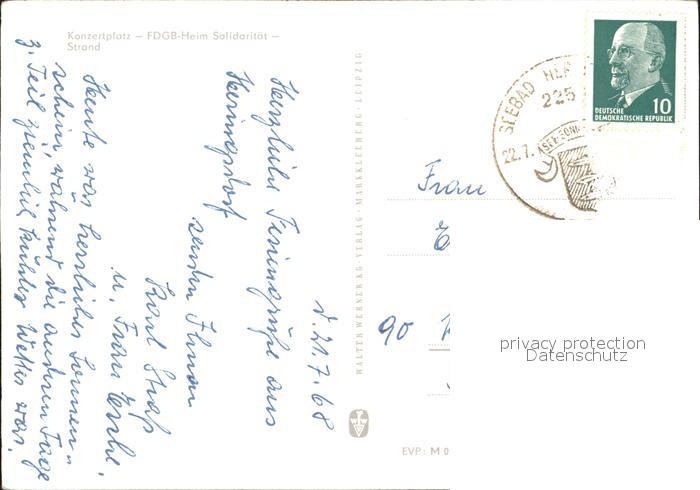 Konzertplatz – FDGB-Heim Solidarität –
Strand
d. 21.7.68
Herzliche Feriengrüße aus
Heringsdorf
senden Ihnen
Karl
u. Frau
Heute war herrlicher Sonnen-
schein, während die anderen Tage
z. Teil ziemlich kühles Wetter war.
WALTER WERNER KG · VERLAG · MARKKLEEBERG - LEIPZIG
SEEBAD HER
225
22.7.
10
DEUTSCHE
DEMOKRATISCHE REPUBLIK
Frau
90
privacy protection
Datenschutz
EVP: M 0